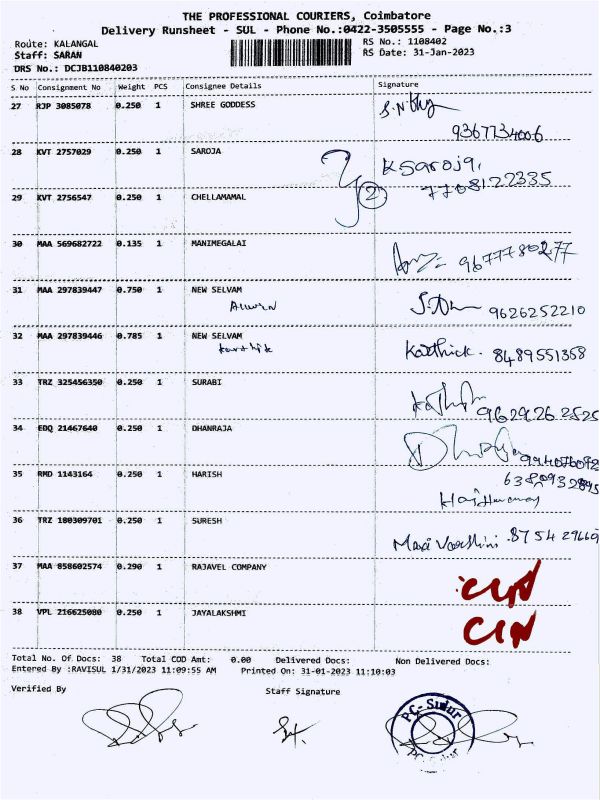 THE PROFESSIONAL COURIERS, Coimbatore
Delivery Runsheet - SUL - Phone No.:0422-3505555 - Page No.:3
Route: KALANGAL RS No.: 1108402
Staff: SARAN RS Date: 31-Jan-2023
DRS No.: DCJB110840203
S No Consignment No Weight PCS Consignee Details Signature
27 RJP 3085078 0.250 1 SHREE GODDESS
9367734006
28 KVT 2757029 0.250 1 SAROJA K Saroja,
2 7708122335
29 KVT 2756547 0.250 1 CHELLAMAMAL
30 MAA 569682722 0.135 1 MANIMEGALAI 9677780277
31 MAA 297839447 0.750 1 NEW SELVAM
9626252210
32 MAA 297839446 0.785 1 NEW SELVAM
Karthik Karthick. 8489551358
33 TRZ 325456350 0.250 1 SURABI
9629262525
34 EDQ 21467640 0.250 1 DHANRAJA
35 RMD 1143164 0.250 1 HARISH
36 TRZ 180309701 0.250 1 SURESH
37 MAA 858602574 0.290 1 RAJAVEL COMPANY
38 VPL 216625080 0.250 1 JAYALAKSHMI
Total No. Of Docs: 38 Total COD Amt: 0.00 Delivered Docs: Non Delivered Docs:
Entered By :RAVISUL 1/31/2023 11:09:55 AM Printed On: 31-01-2023 11:10:03
Verified By Staff Signature
PC-Sulur
PC-Sulur